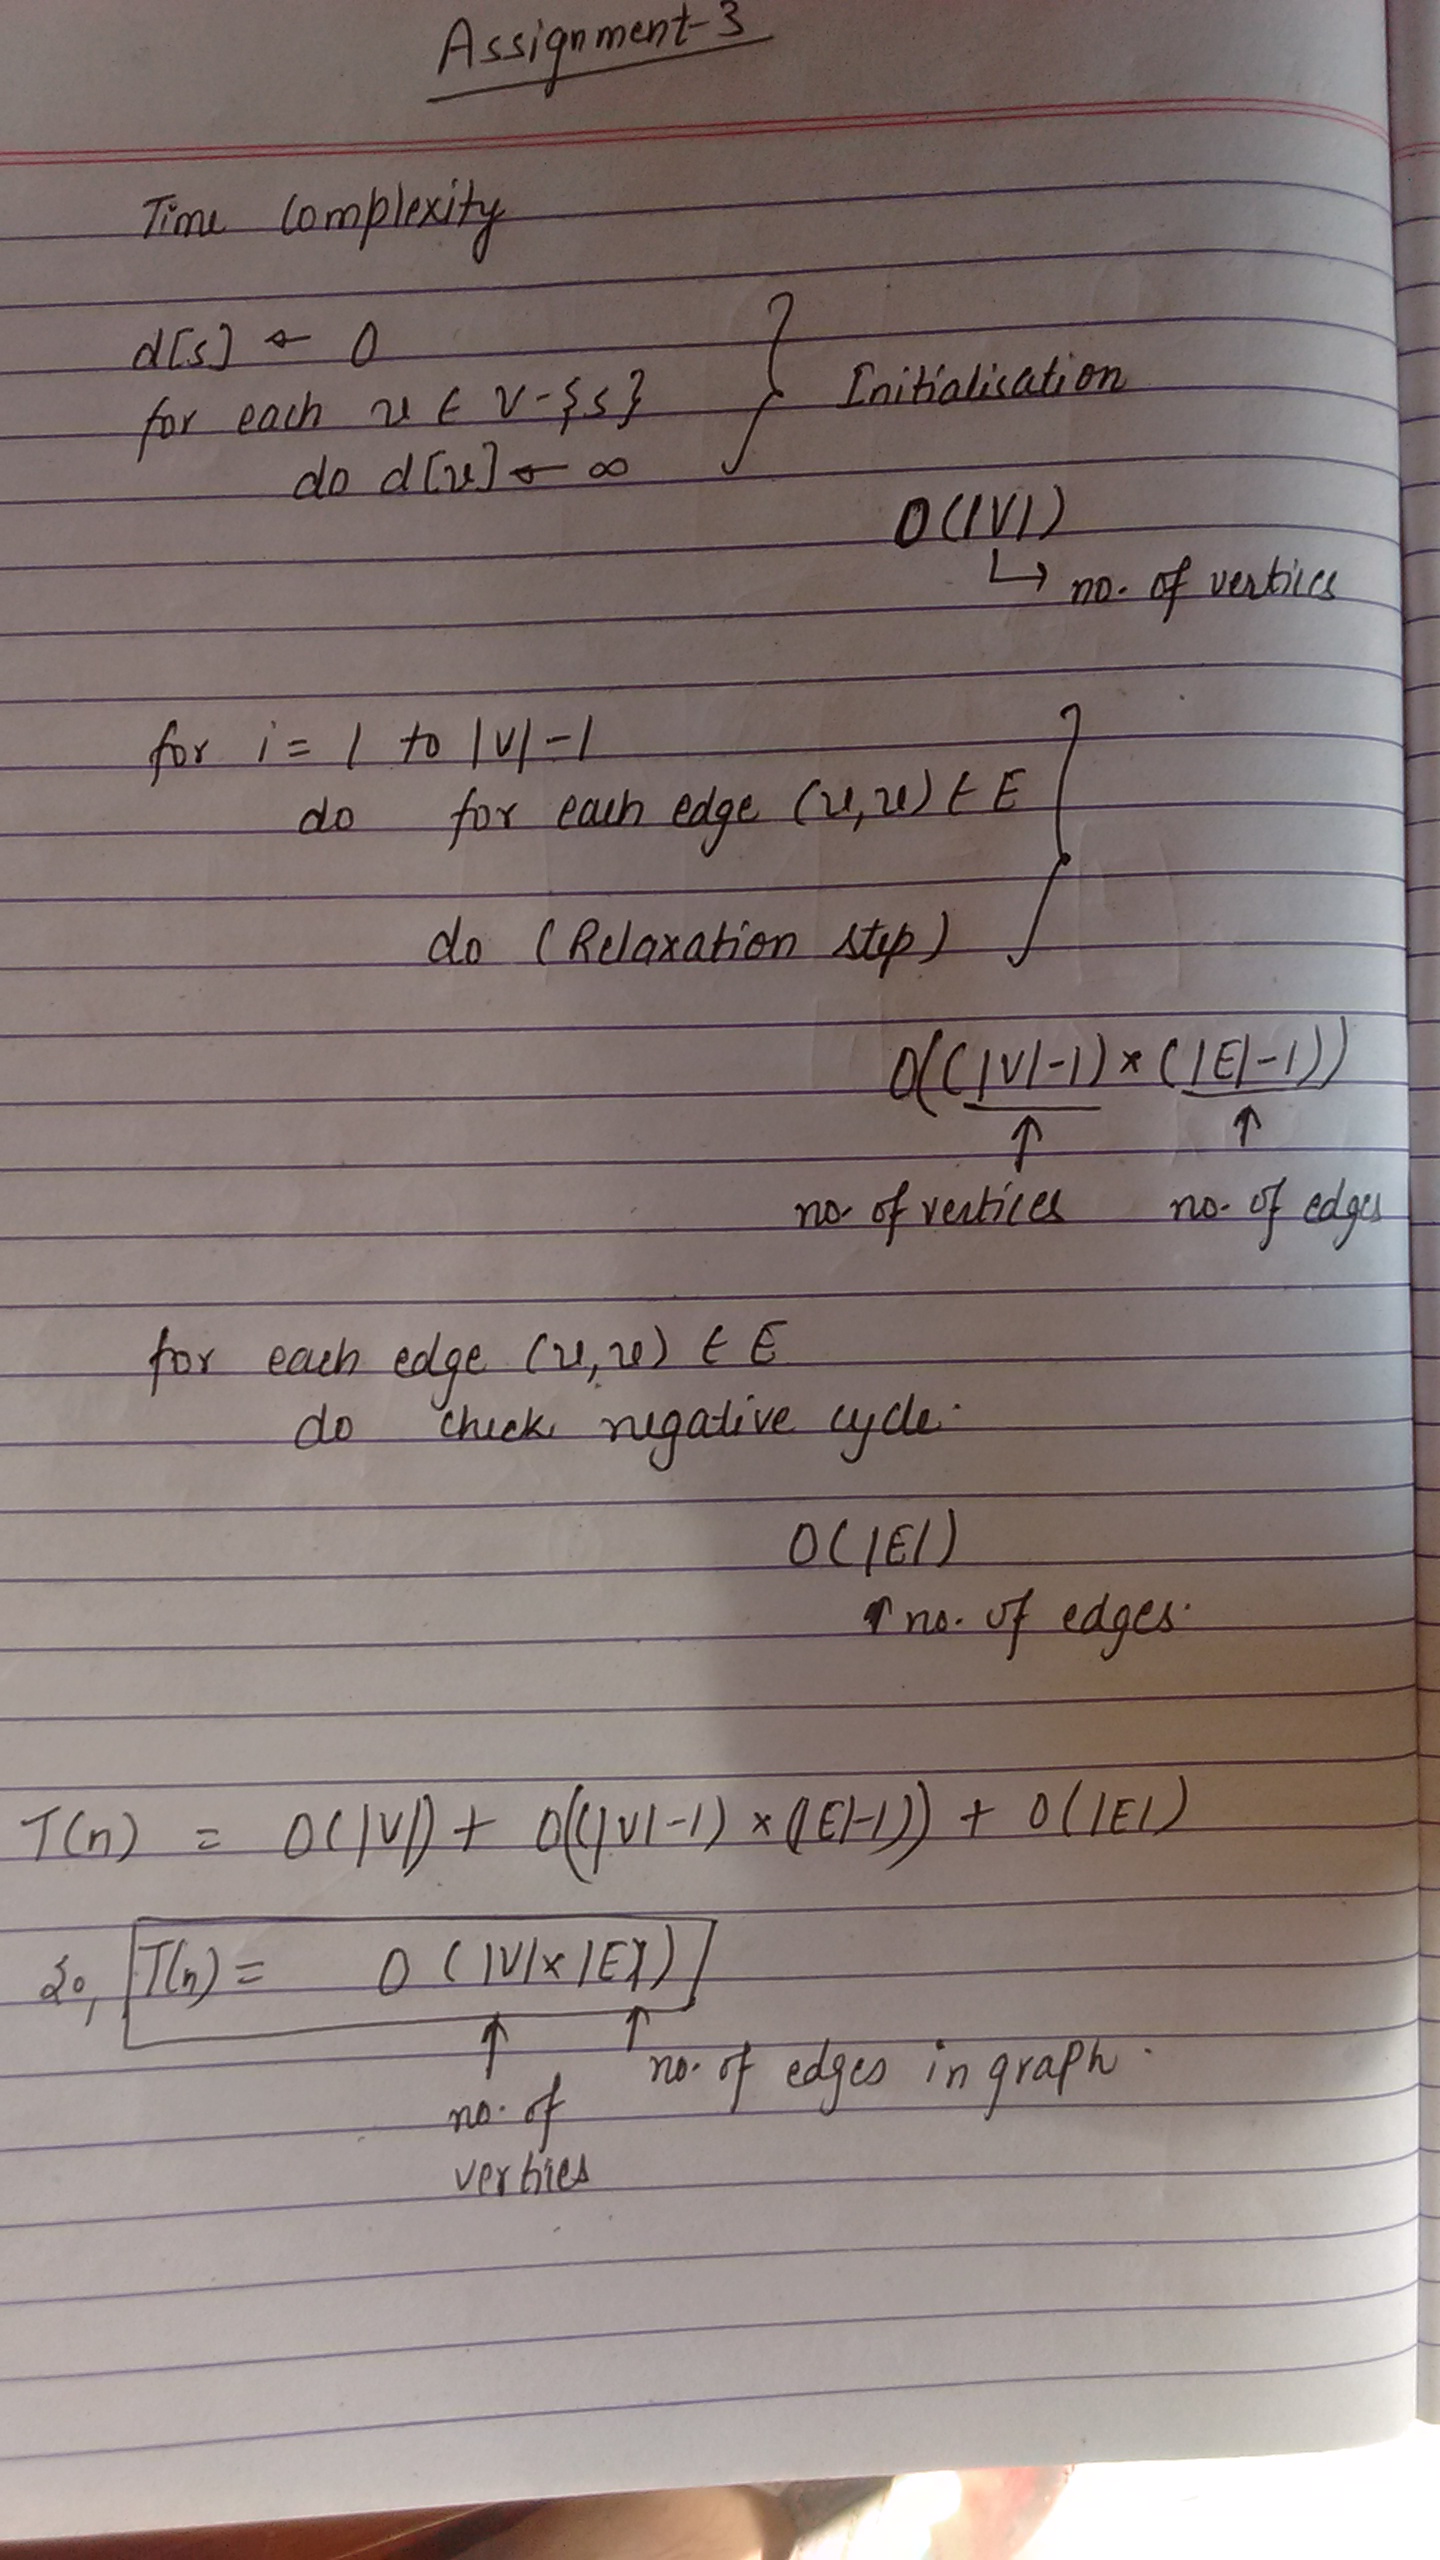 Assignment-3
Time Complexity
d[s] ← 0
for each v ∈ V-{s}
do d[v] ← ∞
Initialisation
O(|V|)
↳ no. of vertices
for i = 1 to |V|-1
do for each edge (u,v) ∈ E
do (Relaxation step)
O((|V|-1) × (|E|-1))
↑ ↑
no. of vertices no. of edges
for each edge (u,v) ∈ E
do check negative cycle.
O(|E|)
↑ no. of edges.
T(n) = O(|V|) + O((|V|-1) × (|E|-1)) + O(|E|)
So, T(n) = O (|V| × |E|)
↑ ↑
no. of edges in graph.
no. of
vertices